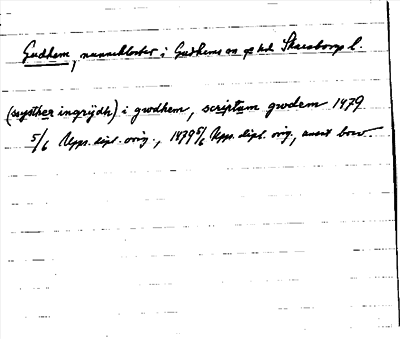 Gudhem, nunnekloster i Gudhems sn o hd Skaraborgs l.
(systher ingrijdh) i gwdhem, scriptum gwdem 1479
5/6 Upps. dipl. orig., 1479 5/6 Upps. dipl. orig., annat brev.